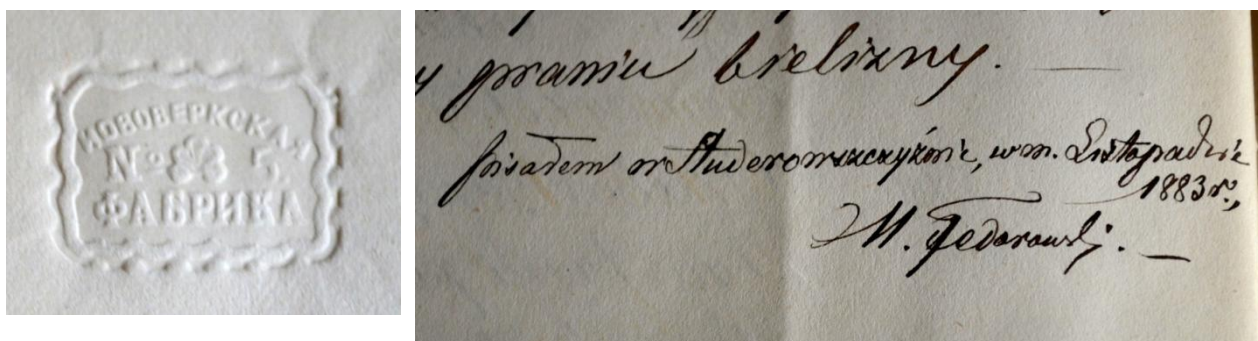 НОВОВЕРКСКАЯ
№ 5
ФАБРИКА
praniu bielizny. —
pisałem w Studerowszczyźnie, w m. Listopadzie
1883 r.,
M. Federowski. —